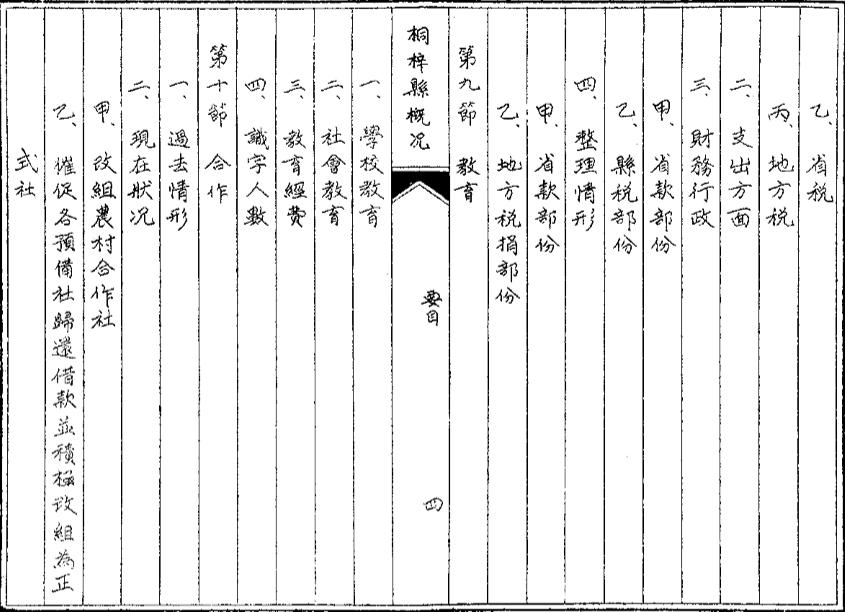 乙、省税
丙、地方税
二、支出方面
三、財務行政
甲、省款部份
乙、縣税部份
四、整理情形
甲、省款部份
乙、地方税捐部份
第九節 教育
桐梓縣概況 要目 四
一、學校教育
二、社會教育
三、教育經費
四、識字人數
第十節 合作
一、過去情形
二、現在狀况
甲、改組農村合作社
乙、催促各預備社歸還借款並積極改組為正
式社